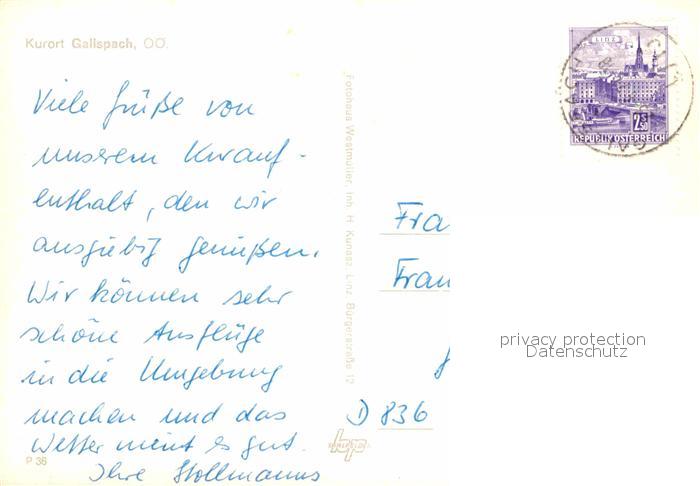 Kurort Gallspach, OÖ.
Viele Grüße von
unserem Kurauf-
enthalt, den wir
ausgiebig genießen.
Wir können sehr
schöne Ausflüge
in die Umgebung
machen und das
Wetter meint es gut.
Ihre Stollmanns
P 36
Fotohaus Westmüller, Inh. H. Kunasz, Linz Bürgerstraße 12
LINZ
2.50
REPUBLIK ÖSTERREICH
Fra
Fran
privacy protection
Datenschutz
D 836